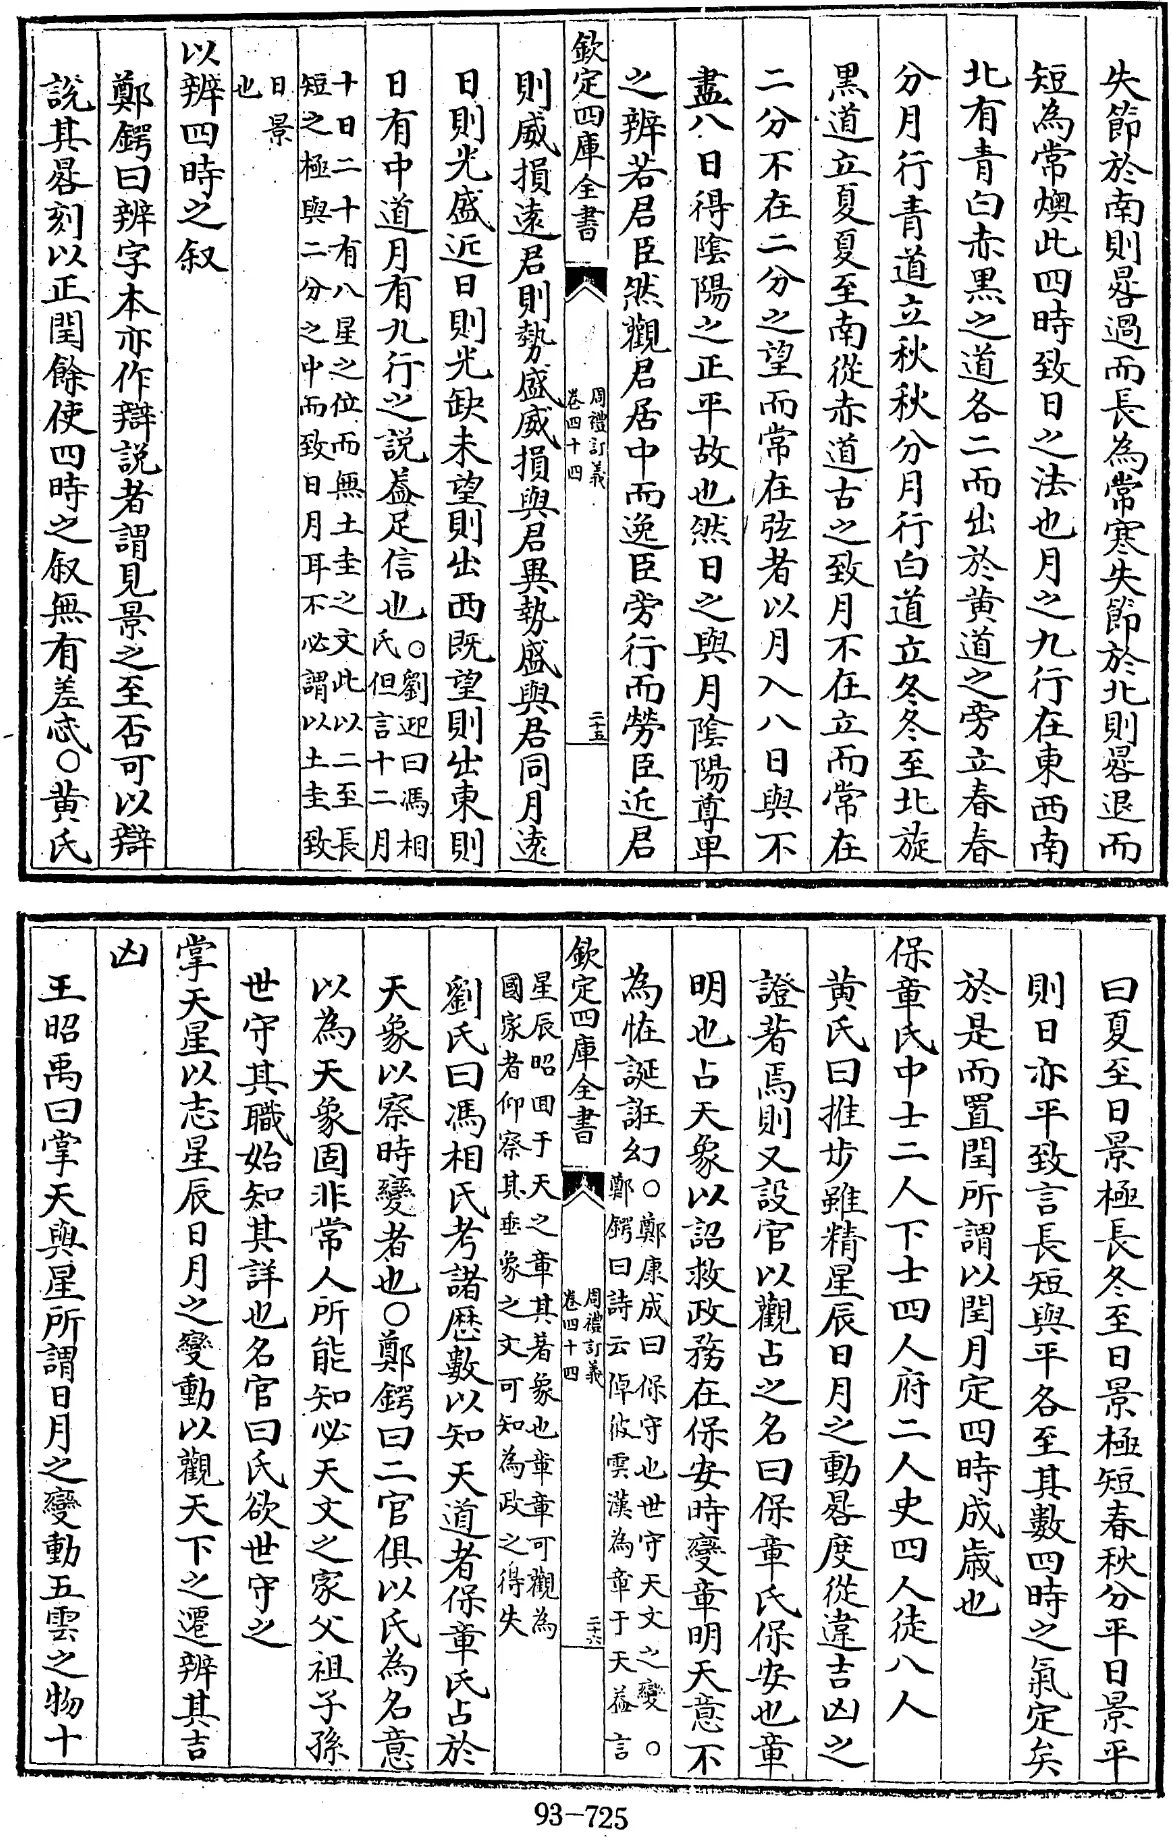 失節於南則晷過而長為常寒失節於北則晷退而
短為常燠此四時致日之法也月之九行在東西南
北有青白赤黑之道各二而出於黄道之旁立春春
分月行青道立秋秋分月行白道立冬冬至北旋
黒道立夏夏至南從赤道古之致月不在立而常在
二分不在二分之望而常在弦者以月入八日與不
盡八日得隂陽之正平故也然日之與月隂陽尊卑
之辨若君臣然觀君居中而逸臣旁行而勞臣近君
欽定四庫全書
周禮訂義
卷四十四
二十五
則威損逺君則勢盛威損與君異勢盛與君同月逺
日則光盛近日則光缺未望則出西既望則出東則
日有中道月有九行之説葢足信也○劉迎曰馮相
氏但言十二月
十日二十有八星之位而無土圭之文此以二至長
短之極與二分之中而致日月耳不必謂以土圭致
日景
也
以辨四時之叙
鄭鍔曰辨字本亦作辯説者謂見景之至否可以辯
説其晷刻以正閏餘使四時之叙無有差忒○黄氏
曰夏至日景極長冬至日景極短春秋分平日景平
則日亦平致言長短與平各至其數四時之氣定矣
於是而置閏所謂以閏月定四時成歳也
保章氏中士二人下士四人府二人史四人徒八人
黄氏曰推步雖精星辰日月之動晷度從違吉凶之
證著焉則又設官以觀占之名曰保章氏保安也章
明也占天象以詔救政務在保安時變章明天意不
為恠誕誑幻○鄭康成曰保守也世守天文之變○
鄭鍔曰詩云倬彼雲漢為章于天葢言
欽定四庫全書
周禮訂義
卷四十四
二十六
星辰昭囬于天之章其著象也章章可觀為
國家者仰察其垂象之文可知為政之得失
劉氏曰馮相氏考諸歴數以知天道者保章氏占於
天象以察時變者也○鄭鍔曰二官俱以氏為名意
以為天象固非常人所能知必天文之家父祖子孫
世守其職始知其詳也名官曰氏欲世守之
掌天星以志星辰日月之變動以觀天下之遷辨其吉
凶
王昭禹曰掌天與星所謂日月之變動五雲之物十
93-725